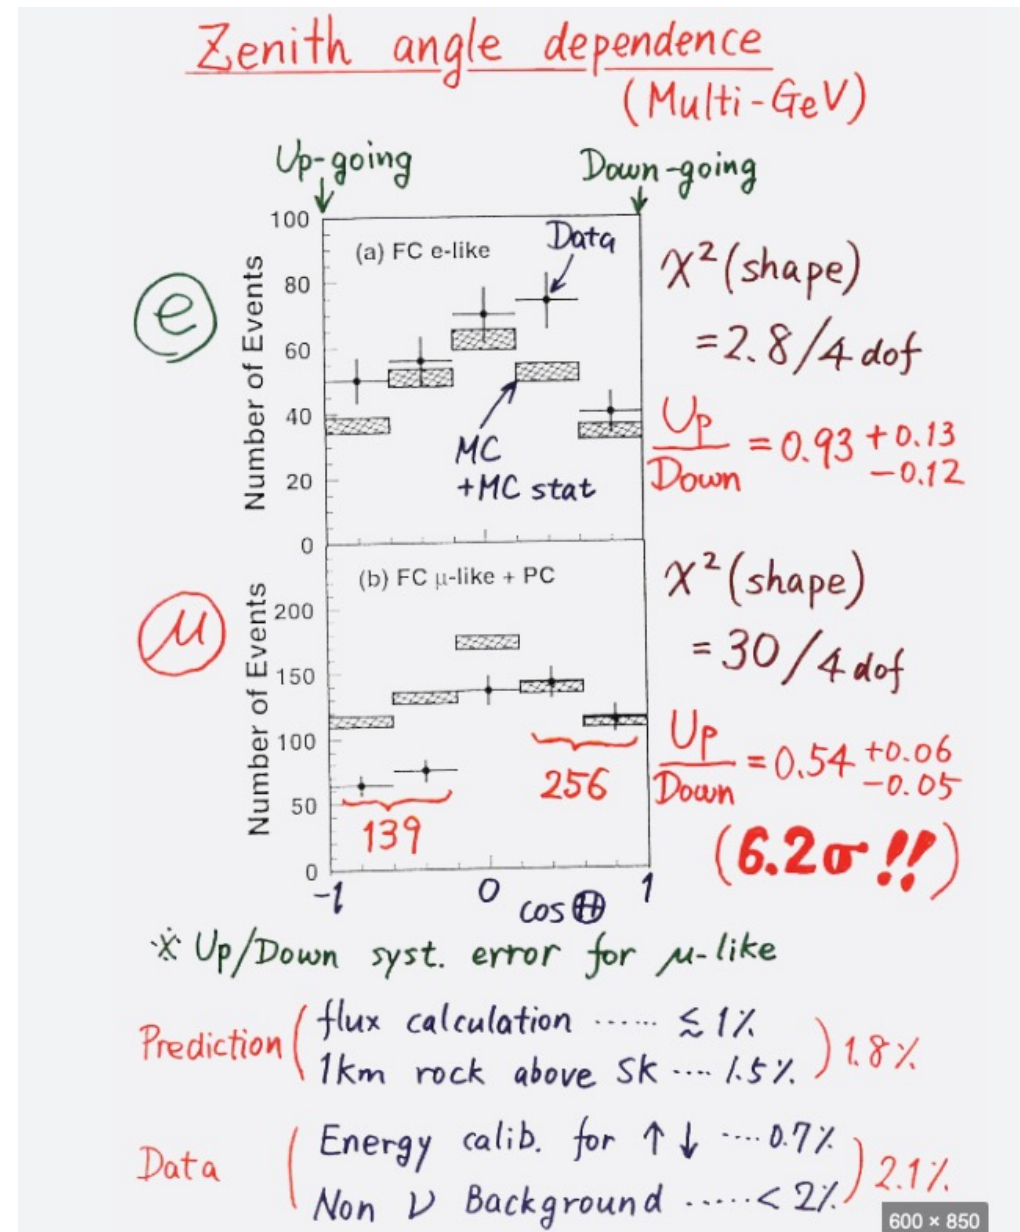 Zenith angle dependence
(Multi-GeV)
Up-going
Down-going
100
80
60
40
20
0
Number of Events
(a) FC e-like
Data
MC
+MC stat
e
χ²(shape)
=2.8/4 dof
Up/Down = 0.93 +0.13 -0.12
200
150
100
50
0
Number of Events
(b) FC μ-like + PC
μ
139
256
χ²(shape)
=30/4 dof
Up/Down = 0.54 +0.06 -0.05
(6.2σ!!)
-1 0 1
cos Θ
※ Up/Down syst. error for μ-like
Prediction ( flux calculation ...... ≲ 1%
1km rock above SK .... 1.5% ) 1.8%
Data ( Energy calib. for ↑ ↓ .... 0.7%
Non ν Background ...... < 2% ) 2.1%
600 × 850